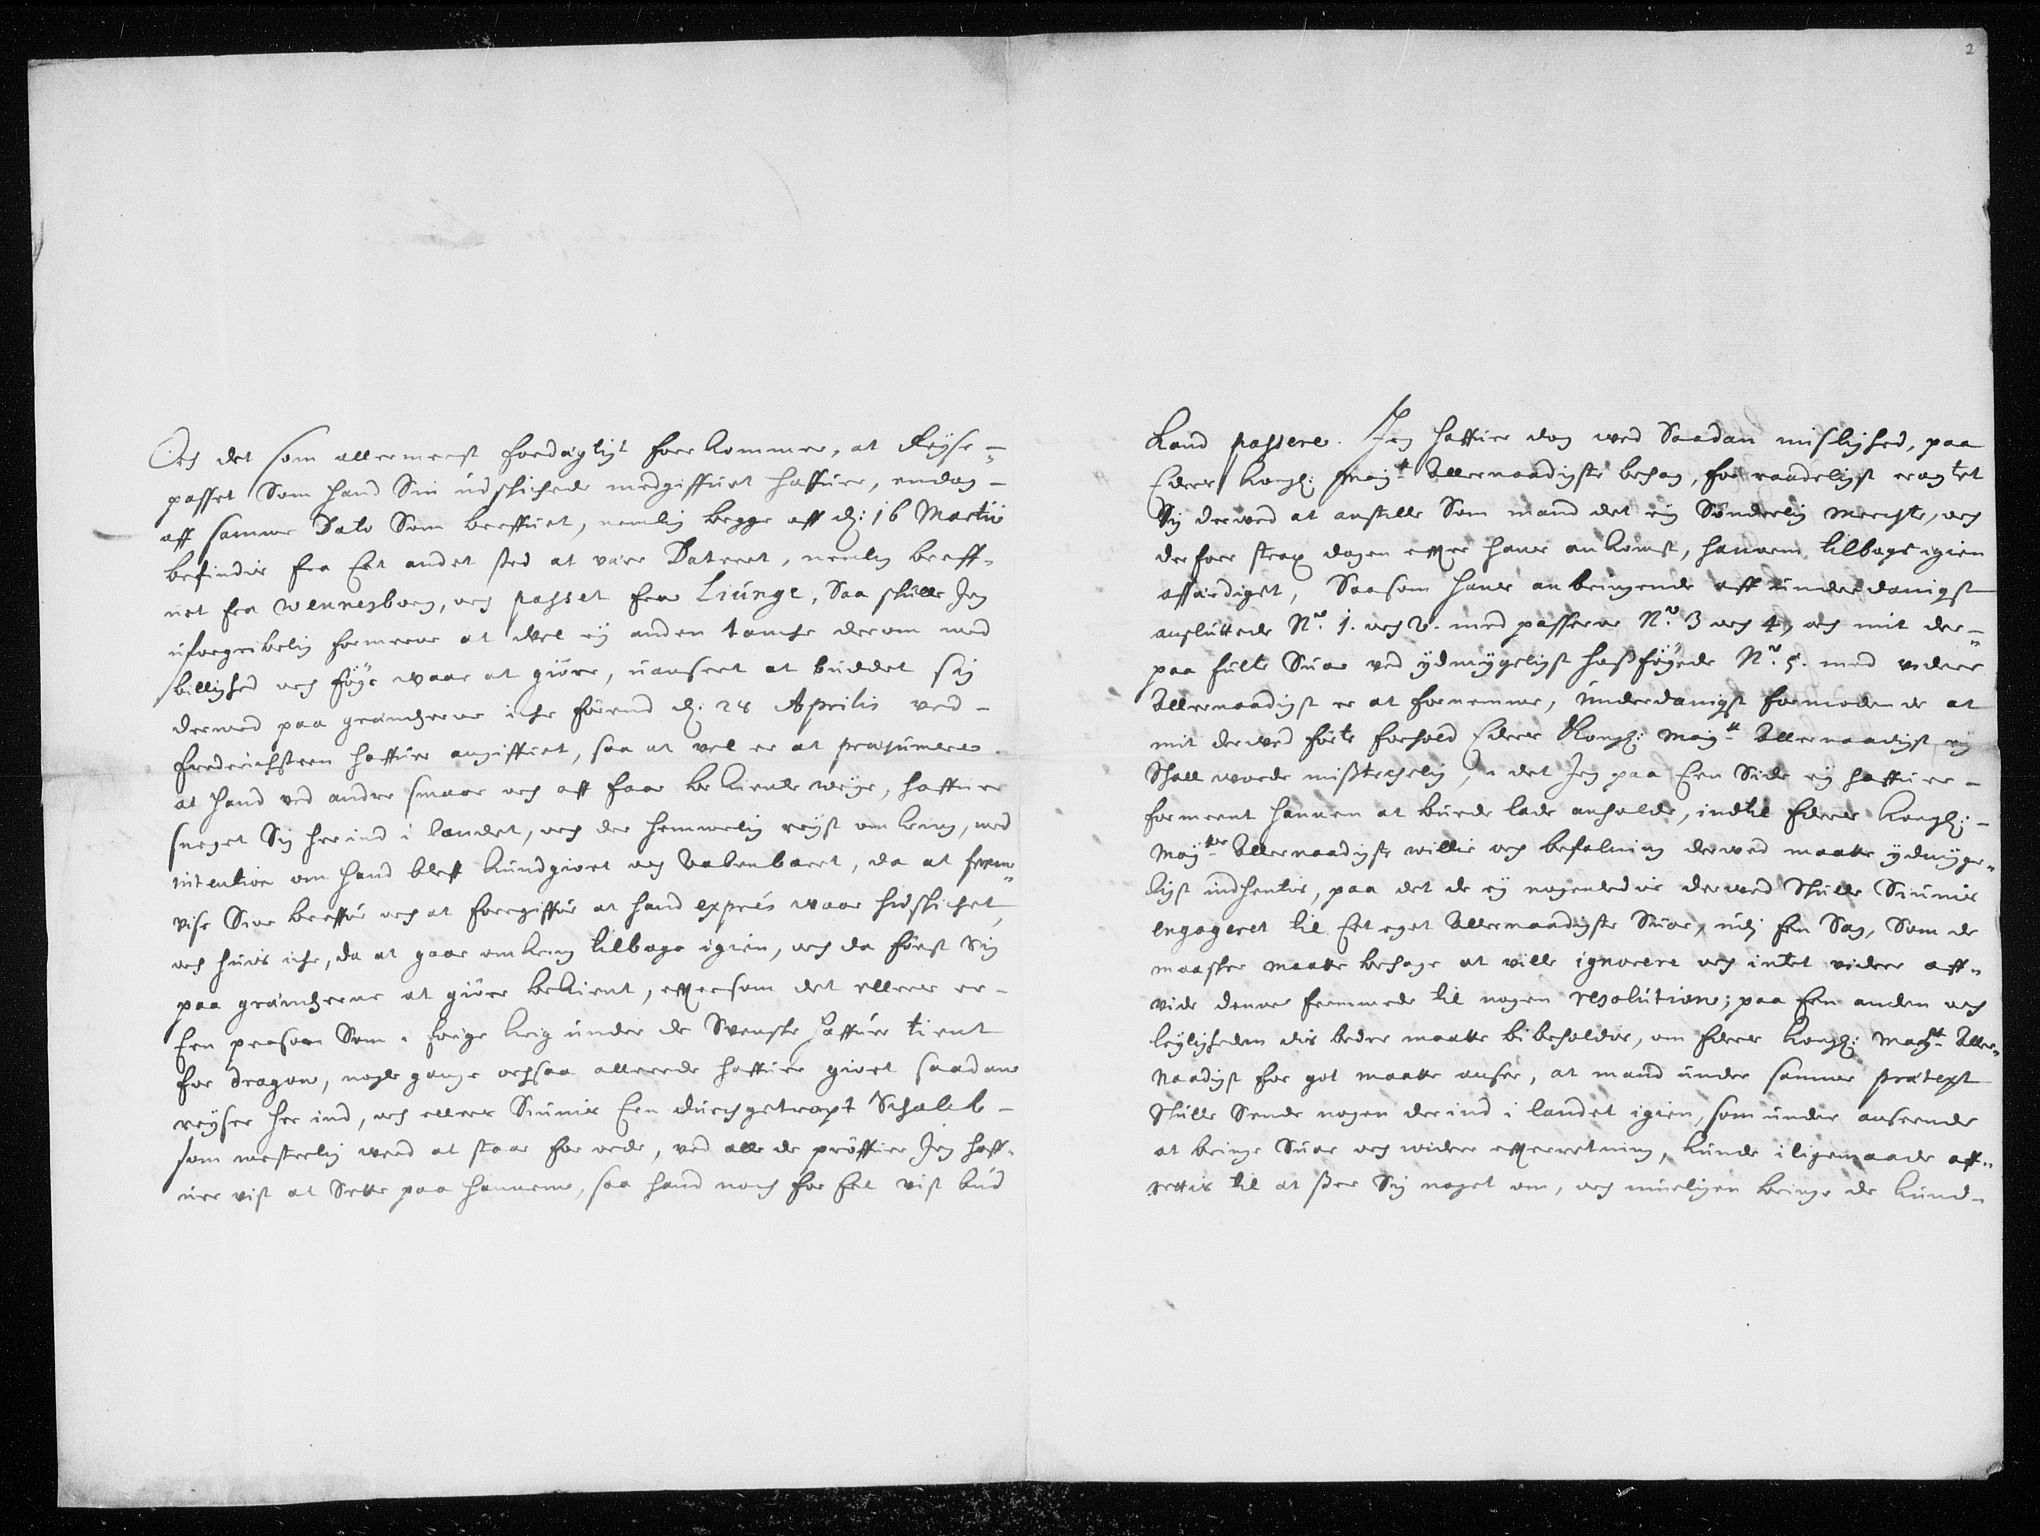 2
Och det som allermeest fordægtigt forekommer, at Reyse-
passet Som hand Sin udschichede medgiffuet haffuer, endog
aff samme Dato Som breffuet, nemlig begge aff d: 16 Martii
befindis fra Eet andet sted at være Dateret, nemlig breff-
uet fra Wennersborg, och passet fra Liunge, Saa skulle Jeg
uforgribelig formeene at vel ej anden tanche derom med
billighed och føye waar at giøre, uanseet at buddet sig
dermed paa grændserne iche førend d: 28 Aprilis ved
Frederichsteen haffuer angiffuet, saa at vel er at præsumere
at hand ved andre smaae och aff faae bekiente weye, haffuer
sneget Sig her ind i landet, och der hemmelig reyst omkring, med
intention om hand bleff kundgiort och Aabenbaret, da at frem-
vise Sine breffue och at foregiffue at hand exprés waar hidschichet,
och huis iche, da at gaae omkring tilbage igien, och da først Sig
paa grændserne at giøre bekient, effterssom det ellers er
Een person Som i forige krig under de Svenske haffuer tient
for dragon, nogle gange ochsaa allerede haffuer giort saadane
reyser her ind, och ellers Siunis Een durchgetrapt Schalck
som mesterlig weed at staae for rede, ved alle de prøffuer Jeg haff-
uer vist at Sette paa hannem, saa hand noch for Eet vist bud
kand passere. Jeg haffuer dog ved Saadan mislighed, paa
Eders Kongl: May:t Allernaadigste behag, for raadeligst eragtet
Sig derved at anstille Som mand det ej Sønderlig merchte, och
derfore strax dagen effter hans ankomst, hannem tilbage igien
affærdiget, Saasom hans anbringende aff underdanigst
ansluttede N:o 1. och 2. med passerne N:o 3 och 4, och mit der-
paa fulte Suar ved ydmygeligst hosføyede N:o 5. med videre
Allernaadigst er at fornemme, underdanigst formodende at
mit derved førte forhold Eders Kongl: May:tt Allernaadigst ej
Skall worde mißtechelig, i det Jeg paa Een Side ej haffuer
formeent hannem at burde lade anholde, indtil Eders Kongl:
May:ttes Allernaadigste willie och befalning derved maatte ydmyge-
ligst indhentis, paa det de ej nogenledis derved Skulle Siunis
engageret til Eet eget Allernaadigste Suar, udj Een Sag, Som de
maaskee maatte behage at ville ignorere och intet videre aff
vide denne fremmede til nogen resolution; paa Een anden och
leyligheden dis bedre maatte bibeholdes, om Eders Kongl: May:tt Aller-
Naadigst for got maatte ansee, at mand under samme prætext
Skulle Sende nogen der ind i landet igien, som under anseende
at bringe Suar och widere effterretning, kunde iligemaade aff-
rettis til at see Sig noget om, och mueligen bringe de kund-